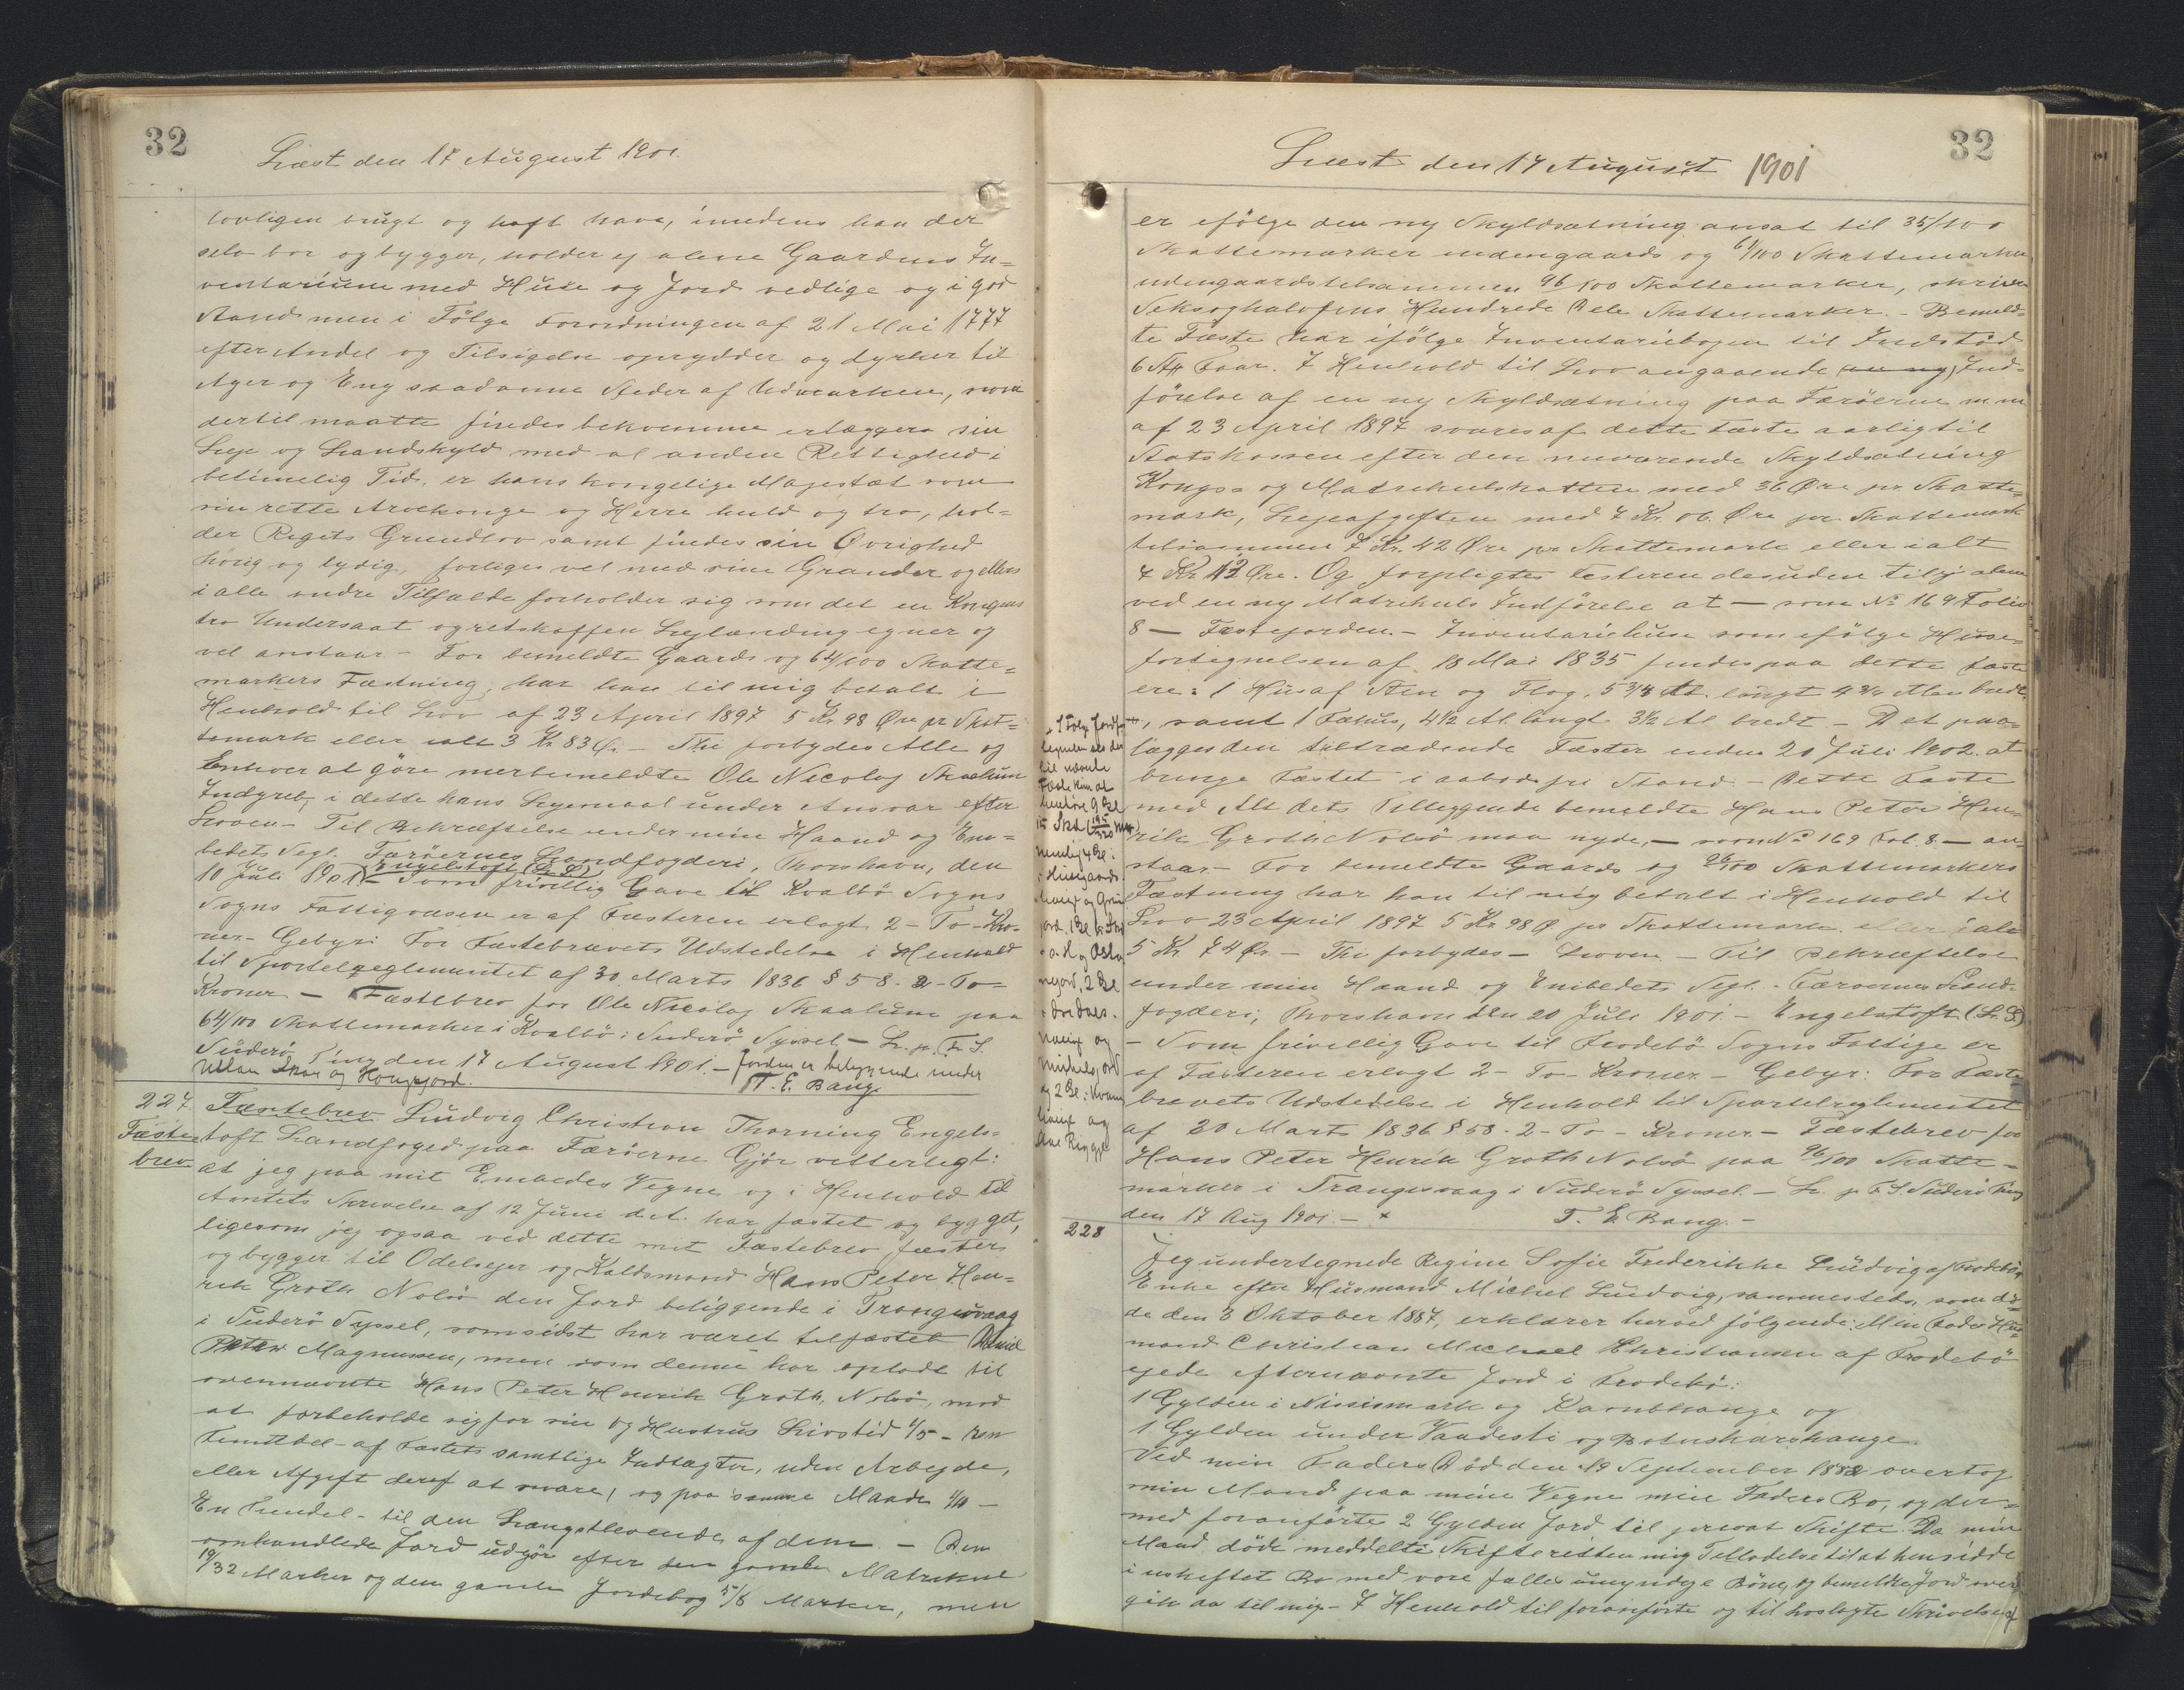 32
Læst den 17 August 1901.
lovligen brugt og haft have, imedens han der
selv bor og bygger, holder ej alene Gaardens In=
ventarium med Huse og Jord vedlige og i god
Stand men i Følge Forordningen af 21 Mai 1777
efter Andel og Tilsigelse oprydder og dyrker til
Ager og Eng saadanne Steder af Udmarken, som
dertil maatte findes bekvemme erlægger sin
Leje og Landskyld med al anden Rettighed i
betimelig Tid, er hans kongelige Majestæt som
sin rette Arvekonge og Herre huld og tro, hol=
der Rigets Grundlov samt findes sin Øvrighed
hørig og lydig, forliges vel med sine Grander og ellers
i alle andre Tilfælde forholder sig som det en Kongens
tro Undersaat og retskaffen Lejlænding egner og
vel anstaar - For bemeldte Gaards og 64/100 Skatte=
markers Fæstning, har han til mig betalt i
Henhold til Lov af 23 April 1897 5 Kr. 98 Øre pr Skat=
temark eller ialt 3 Kr 83 Ø. - Thi forbydes Alle og
Enhver at gøre merbemeldte Ole Nicolaj Skaalum
Indgreb, i dette hans Lejemaal under Ansvar efter
Loven - Til Bekræftelse under min Haand og Em=
bedets Segl. Færøernes Landfogderi, Thorshavn, den
10 Juli 1901 Engelstoft (L.S.) - Som frivillig Gave til Kvalbø Sogns
Sogns Fattigvæsen er af Fæsteren erlagt 2 - To - Kro-
ner - Gebyr: For Fæstebrevets Udstedelse i Henhold
til Sportelreglementet af 30 Marts 1836 § 58. 2 - To -
Kroner - Fæstebrev for Ole Nicolaj Skaalum paa
64/100 Skattemarker i Kvalbø i Suderø Syssel - L. p. F. S.
Suderø Ting den 17 August 1901. - Jorden er beliggende under
T. E. Bang
227
Fæste=
brev
Fæstebrev Ludvig Christian Thorning Engels=
toft Landfoged paa Færøerne Gjør vitterligt:
at jeg paa mit Embedes Vegne og i Henhold til
Amtets Skrivelse af 12 Juni d.A. har fæstet og bygget,
ligesom jeg ogsaa ved dette mit Fæstebrev fæster
og bygger til Odelsejer og Kaldsmand Hans Peter Hen=
rik Groth Nolsø den Jord beliggende i Trangisvaag
i Suderø Syssel, som sidst har været tilfæstet Daniel
Peter Magnussen, men som denne har opladt til
ovennævnte Hans Peter Henrik Groth Nolsø, mod
at forbeholde sig for sin og Hustrus Livstid 1/5 - een
Femtedel - af Fæstets samtlige Indtægter, uden Arbejde,
eller Afgift deraf at svare, og paa samme Maade 1/10 -
En Tiendel - til den Længstlevende af dem. - Den
omhandlede Jord udgør efter den gamle Matrikul
19/32 Marker og den gamle Jordebog 5/8 Marker, men
32
Læst den 17 August 1901
er ifølge den ny Skyldsætning ansat til 35/100
Skattemarker indengaards og 61/100 Skattemarker
udengaards tilsammen 96/100 Skattemarker, skriver
Seksoghalvfems Hundrede Dele Skattemarker. - Bemeld=
te Fæste har ifølge Inventariebogen til Indstød
6 St Faar. I Henhold til Lov angaaende en ny, Ind=
førelse af en ny Skyldsætning paa Færøerne m m
af 23 April 1897 svares af dette Fæste aarlig til
Statskassen efter den nuværende Skyldsætning
Kongs= og Matrikulskatten med 36 Øre pr. Skatte=
mark, Lejeafgiften med 7 Kr. 06. Øre pr. Skattemark
tilsammen 7 Kr. 42 Øre pr Skattemark eller ialt
7 Kr. 12 Øre. Og forpligtes Fæsteren desuden til ej alene
ved en ny Matrikuls Indførelse at - som No 169 Folio
8 - Fæstejorden. - Inventariehuse som ifølge Huse=
fortegnelsen af 18 Mai 1835 findes paa dette Fæste
ere: 1 Hus af Sten og Flag, 5 3/4 Al. langt 4 3/4 Alen bredt
, samt 1 Fæhus, 4 1/2 Al langt 3 1/2 Al bredt - Det paa=
lægges den tiltrædende Fæster inden 20 Juli 1902 at
bringe Fæstet i aabodsfri Stand. Dette Fæste
med Alt dets Tilliggende bemeldte Hans Peter Hen=
rik Groth Nolsø maa nyde, - som No 169 Fol. 8. - an
staar - For bemeldte Gaards og 96/100 Skattemarkers
Fæstning har han til mig betalt i Henhold til
Lov 23 April 1897 5 Kr. 98 Ø pr Skattemark eller ialt
5 Kr. 74 Ør. - Thi forbydes - Loven - Til Bekræftelse
under min Haand og Embedets Segl. - Færøernes Land=
fogderi, Thorshavn den 20 Juli 1901 - Engelstoft (L.S)
- Som frivillig Gave til Frodebø Sogns Fattige er
af Fæsteren erlagt 2 - To - Kroner - Gebyr: For Fæste=
brevets Udstedelse i Henhold til Sportelreglementet
af 30 Marts 1836 § 58 - 2 - To - Kroner - Fæstebrev for
Hans Peter Henrik Groth Nolsø paa 96/100 Skatte=
marker i Trangisvaag i Suderø Syssel. - L. p. F. S. Suderø Ting
den 17 Aug 1901 - x
T. E. Bang. -
228
Jeg undertegnede Regine Sofie Frederikke Ludvig af Frodebø
Enke efter Husmand Michel Ludvig, sammesteds, som dø=
de den 3 Oktober 1887, erklærer herved følgende: Min Fader Hus=
mand Christian Michael Christiansen af Frodebø
ejede efternævnte Jord i Frodebø:
1 Gylden i Nissismark og Kambhange og
1 Gylden under Vaadesti og Botnskarshange.
Ved min Faders Død den 19 September 1882 overtog
min Mand paa mine Vegne min Faders Bo, og der=
med foranførte 2 Gylden Jord til privat Skifte. Da min
Mand døde meddelte Skifteretten mig Tilladelse til at hensidde
i uskiftet Bo med vore fælles umyndige Børn, og bemeldte Jord over
gik da til mig - I Henhold til foranførte og til hoslagte Skrivelse af